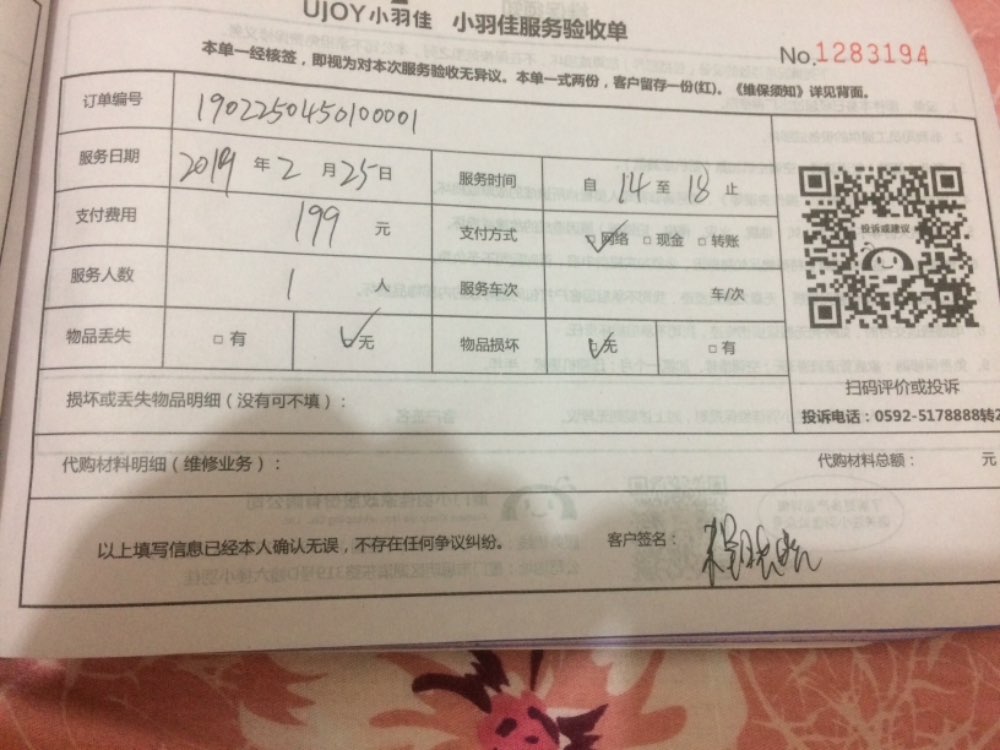 UJOY小羽佳 小羽佳服务验收单
No.1283194
本单一经核签，即视为对本次服务验收无异议。本单一式两份，客户留存一份(红)。《维保须知》详见背面。
订单编号 1902250450100001
服务日期 2019 年 2 月 25 日 服务时间 自 14 至 18 止
支付费用 199 元 支付方式 ☑网络 □现金 □转账
服务人数 1 人 服务车次 车/次
物品丢失 □有 ☑无 物品损坏 ☑无 □有
投诉或建议
扫码评价或投诉
投诉电话：0592-5178888转2
损坏或丢失物品明细（没有可不填）：
代购材料明细（维修业务）： 代购材料总额： 元
以上填写信息已经本人确认无误，不存在任何争议纠纷。 客户签名：